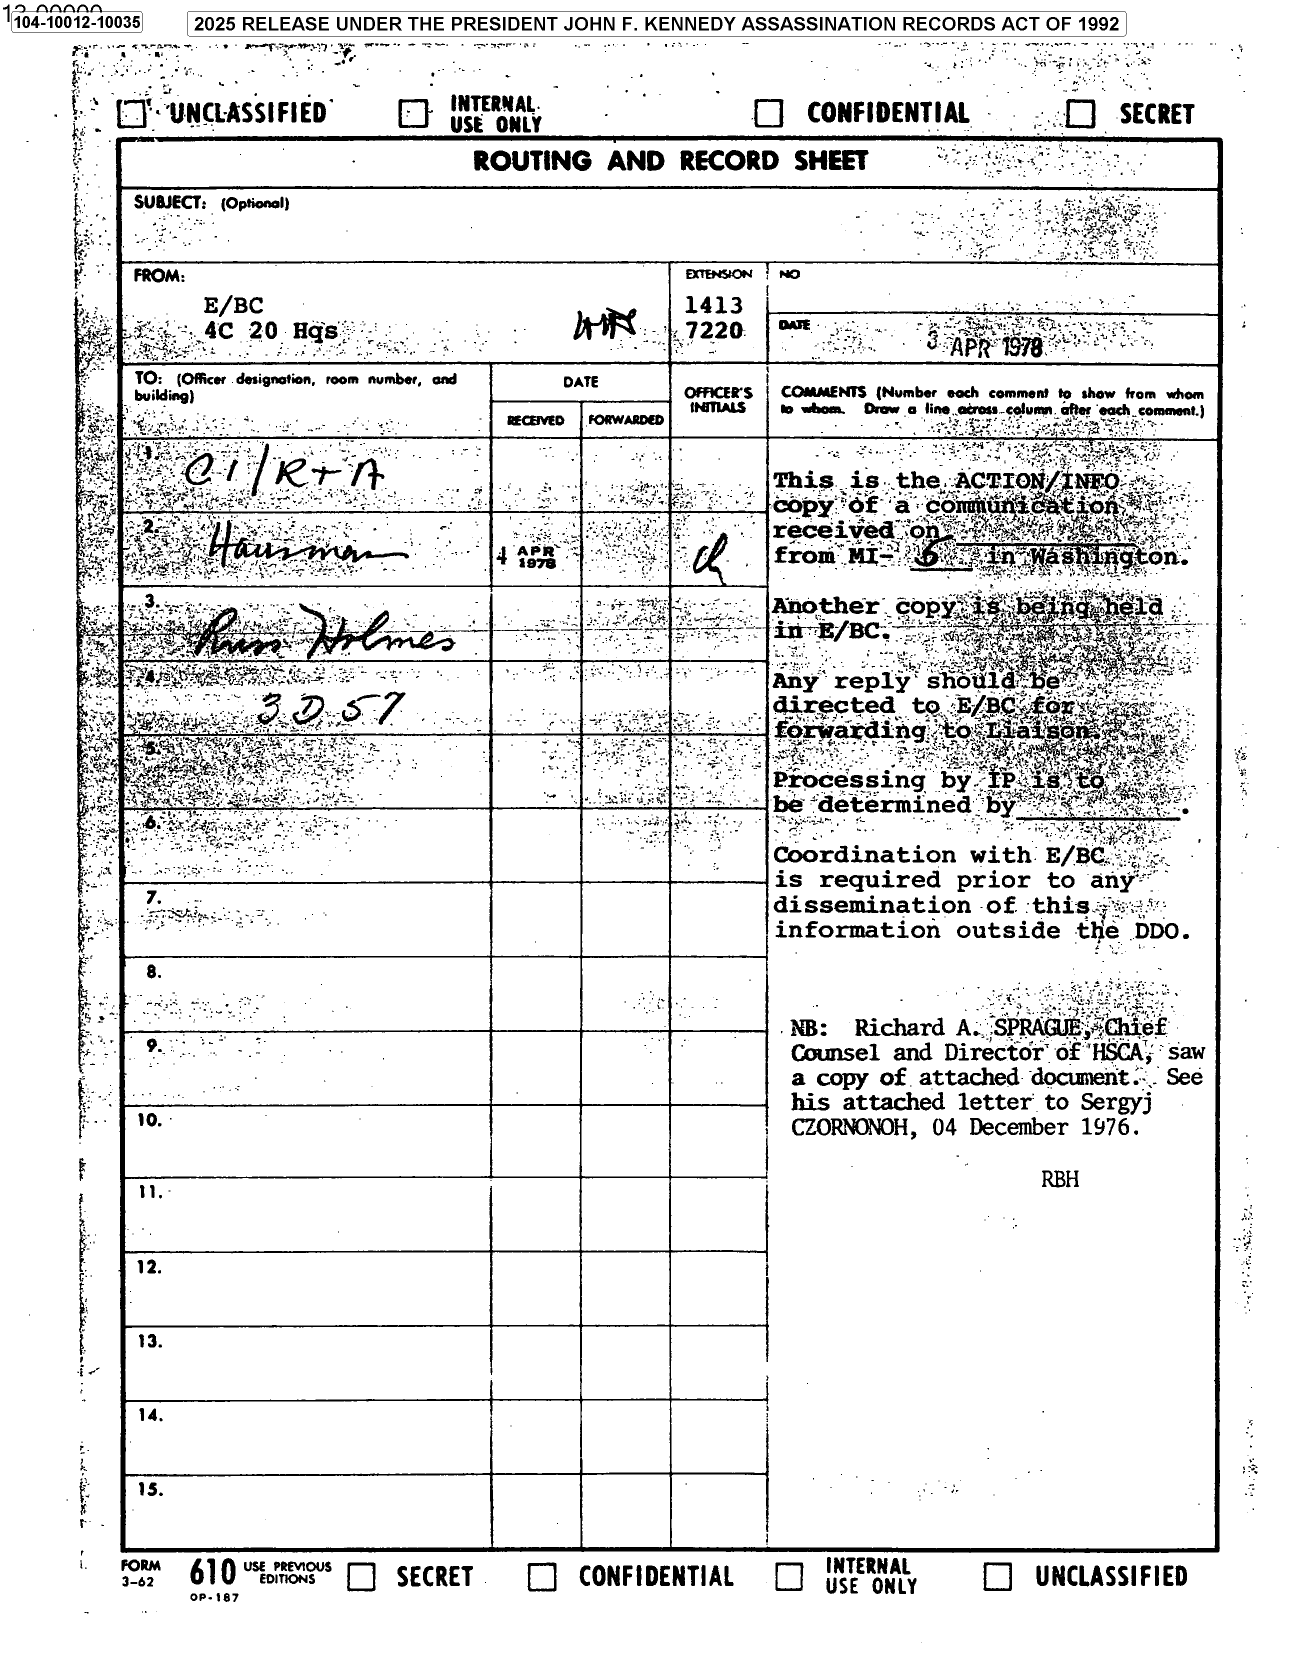 104-10012-10035
2025 RELEASE UNDER THE PRESIDENT JOHN F. KENNEDY ASSASSINATION RECORDS ACT OF 1992
UNCLASSIFIED INTERNAL USE ONLY CONFIDENTIAL SECRET
ROUTING AND RECORD SHEET
SUBJECT: (Optional)
FROM:
E/BC
4C 20 Hqs
EXTENSION
1413
7220
NO
DATE
3 APR 1978
TO: (Officer designation, room number, and
building)
DATE
RECEIVED FORWARDED
OFFICER'S
INITIALS
COMMENTS (Number each comment to show from whom
to whom. Draw a line across column after each comment.)
1.
CI/R+A
2.
Hausman
4 APR
1978
3.
Russ Holmes
4.
3D57
5.
6.
7.
8.
9.
10.
11.
12.
13.
14.
15.
This is the ACTION/INFO
copy of a communication
received on
from MI- 6 in Washington.
Another copy is being held
in E/BC.
Any reply should be
directed to E/BC for
forwarding to Liaison.
Processing by IP is to
be determined by .
Coordination with E/BC
is required prior to any
dissemination of this
information outside the DDO.
NB: Richard A. SPRAGUE, Chief
Counsel and Director of HSCA, saw
a copy of attached document. See
his attached letter to Sergyj
CZORNONOH, 04 December 1976.
RBH
FORM
3-62
610
USE PREVIOUS
EDITIONS
OP-187
SECRET CONFIDENTIAL INTERNAL USE ONLY UNCLASSIFIED